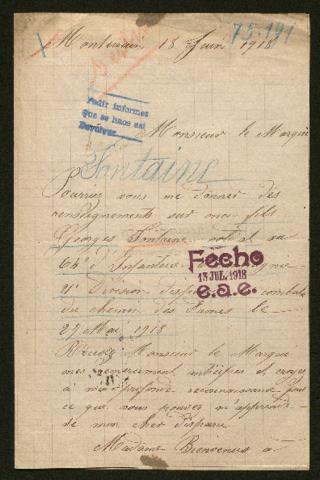 Montluçon 18 Juin 1918
75.191
Pedir informes
que se hace así
Devolver
Monsieur le Marquis
Fontaine
Pourriez vous me donner des
renseignements sur mon fils
Georges Fontaine soldat au
64e d'Infanterie
21e Division disparu combats
du chemin des Dames le
27 Mai 1918
Fecho
13 JUL. 1918
e.a.e.
Recevez Monsieur le Marquis
mes remerciements anticipés et croyez
à ma profonde reconnaissance pour
ce que vous pouvez m'apprendre
de mon cher disparu
Madame Bienvenus à